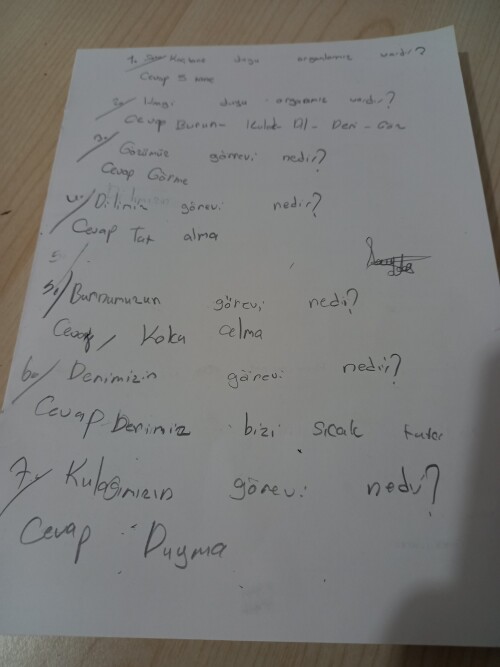 1. Kaç tane duyu organımız vardır?
Cevap 5 tane
2. Hangi duyu organımız vardır?
Cevap Burun - Kulak Dil - Deri - Göz
3. Gözümüz görrevi nedir?
Cevap Görme
4. Dilimiz görevi nedir?
Cevap Tat alma
5
5. Burnumuzun görevi nedi?
Cevap Koku almа
6. Derimizin görevi nedir?
Cevap Derimiz bizi sıcak tutar
7. Kulağımızın görevi nedir?
Cevap : Duyma